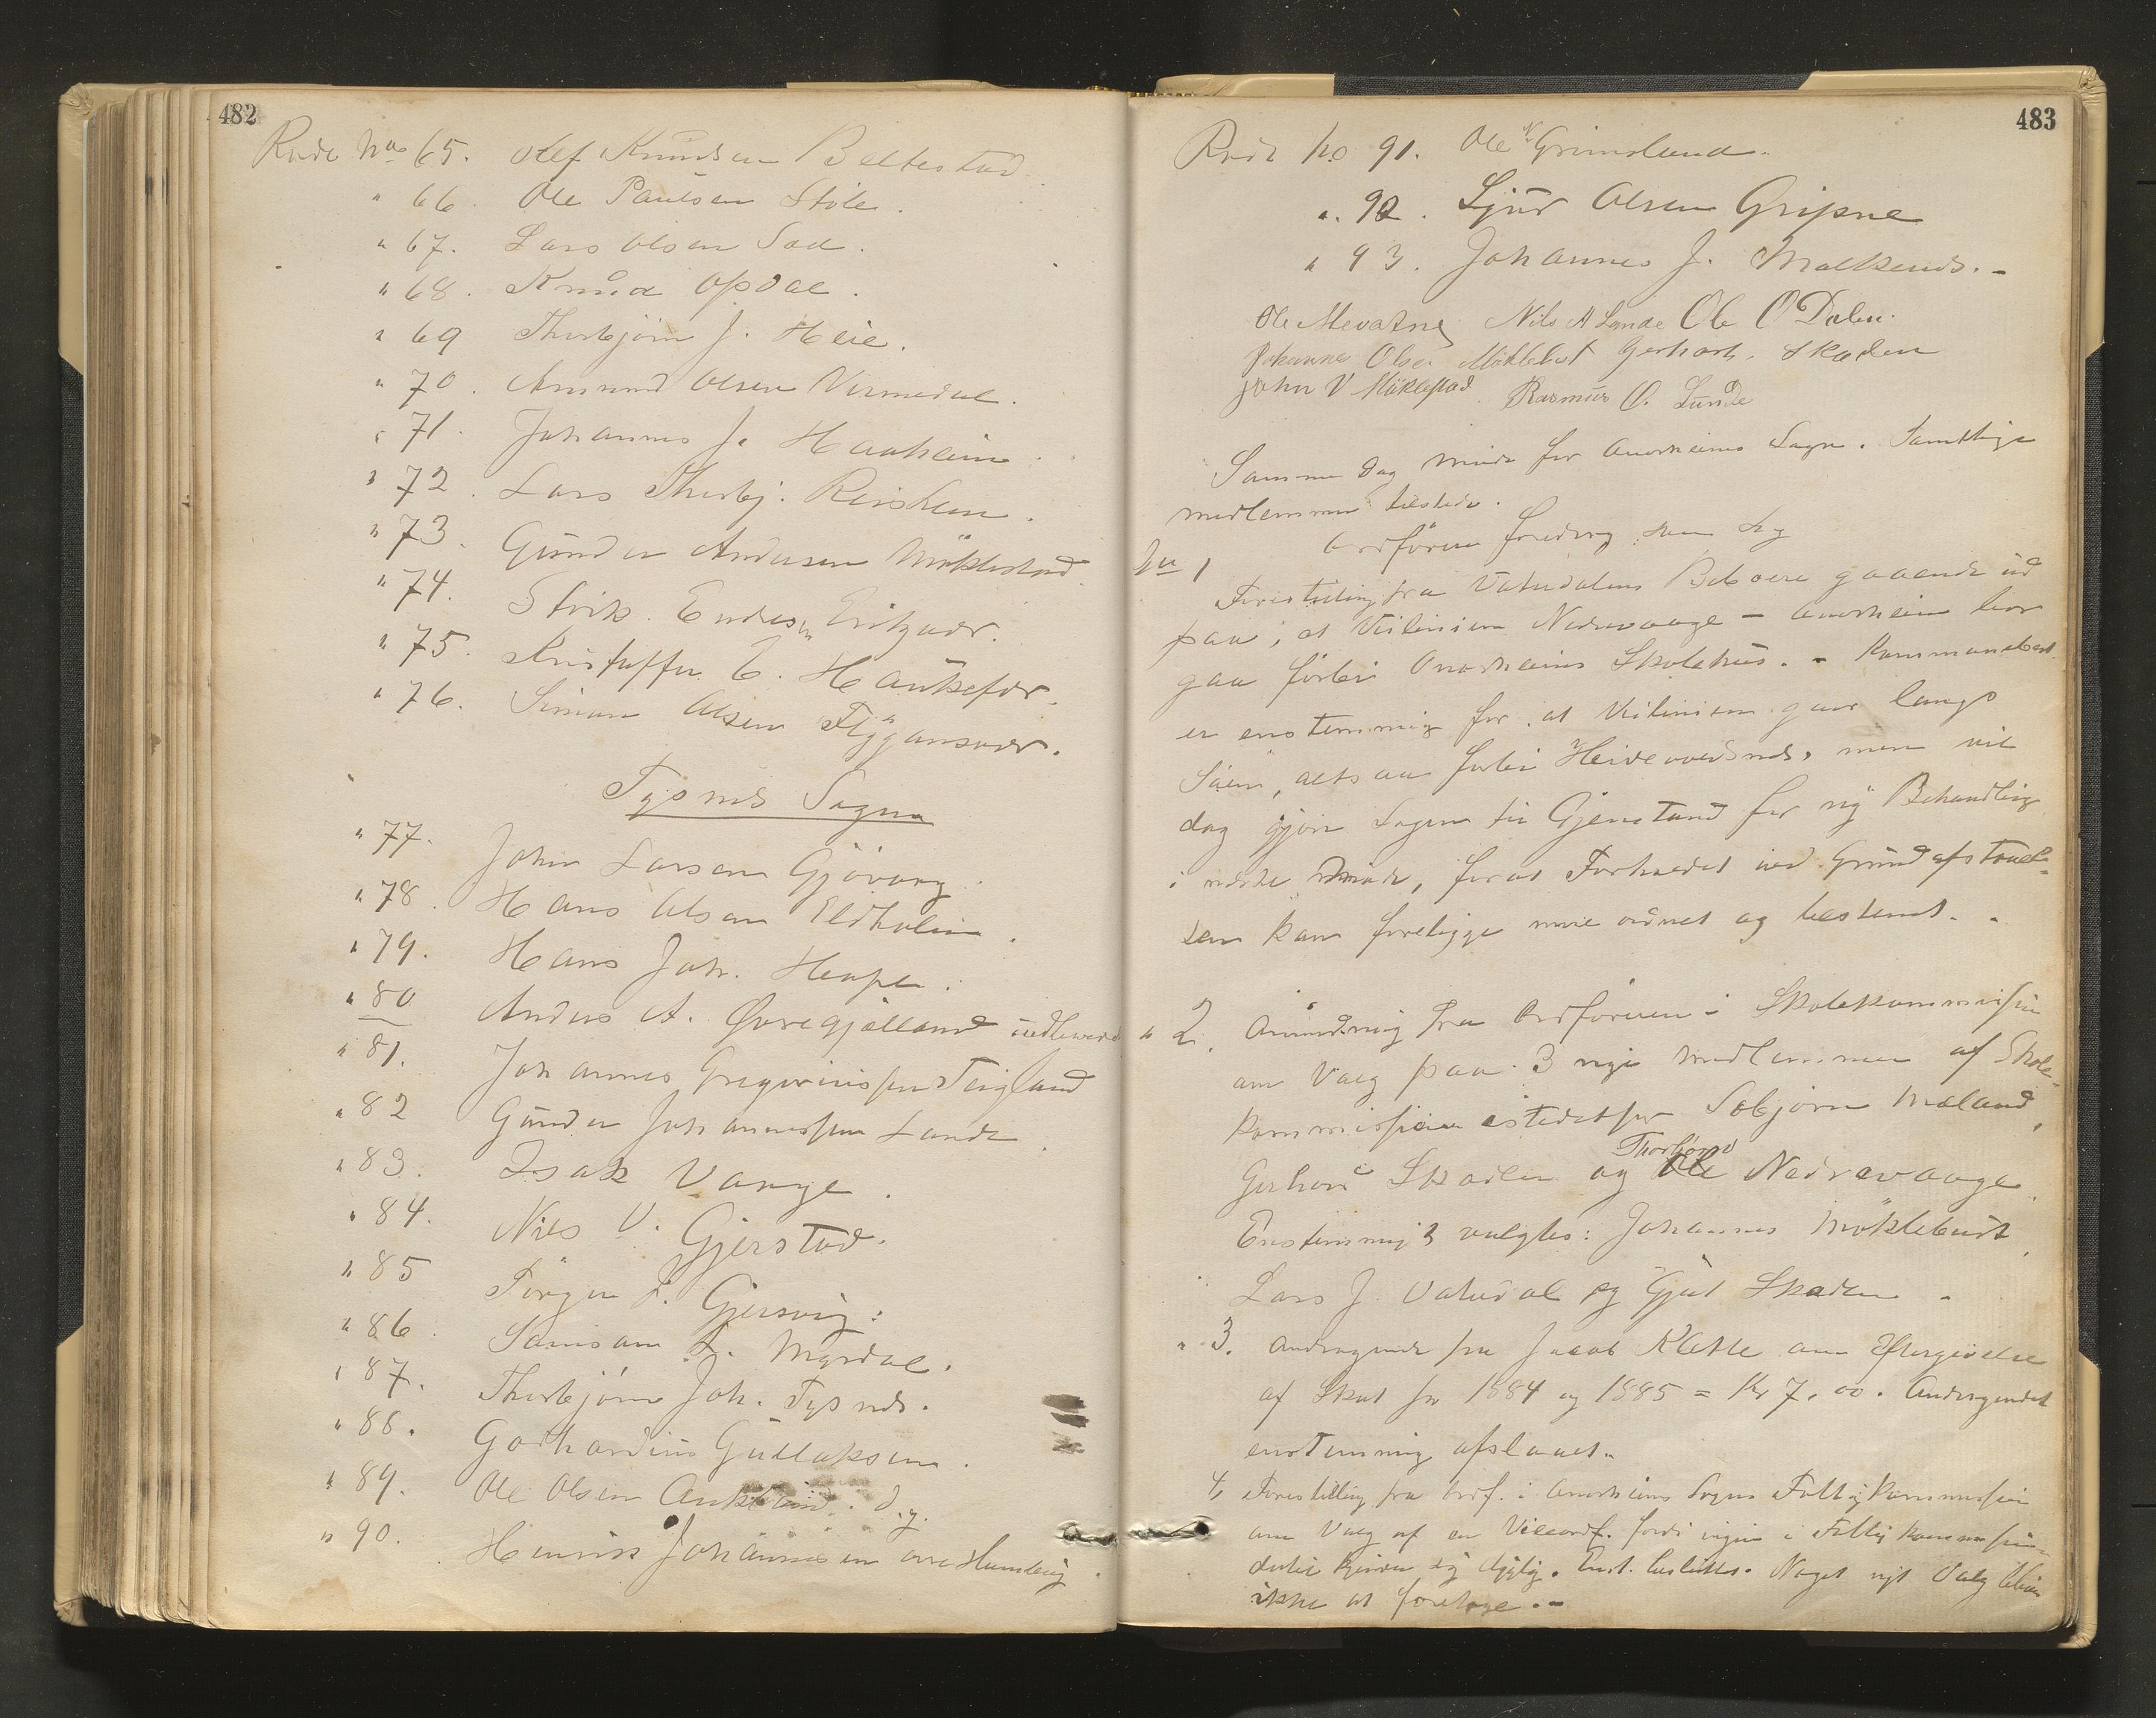 482
Rode No 65. Olef Knudsen Beltestad
" 66. Ole Paulsen Støle.
" 67. Lars Olsen Sae.
" 68. Knud Opdal.
" 69 Thorbjörn J. Heie.
" 70. Amund Olsen Vermedal.
" 71. Johannes J. Haaheim.
" 72. Lars Thorbj. Reisheim.
" 73. Gunder Andersen Möklestad.
" 74. Endresen
" 75. Kristoffer T. Haukefær.
" 76. Simon Olsen Flyganswær.
Tysnes Sogn
" 77. John Larsen Gjövaag.
" 78. Hans Olsen Eldholm.
" 79. Hans Joh. Heape.
" 80 Anders A. Øvregjælland
" 81. Johannes Gregoriussen Teigland
" 82 Gunder Johannessen Lande
" 83. Isak Vange.
" 84. Nils V. Gjerstad.
" 85 Jörgen J. Gjersvig:
" 86. Samson L. Myrdal.
" 87. Thorbjörn Joh. Tysnes.
" 88. Godhardius Gullaksen.
" 89. Ole Olsen
" 90. Henrik Johannesen
483
Rode No 91. Ole N. Grimsland.
" 92. Sjur Olsen Gripne
" 93. Johannes J. Malkenes. -
Ole Mevatne Nils A Lande Ole O Dalen.
Johannes Olsen Möklebust Gerhard. Skaden
John V Möklestad Rasmus O. Lunde
Samme Dag Möde for Onarheims Sogn. Samtlige
medlemmer tilstede.
Ordföreren foredrog Sag
No 1
Forestilling fra Vatnedalens Beboere gaaende ud
paa, at Veilinien Nedrevaage - Onarheim bör
gaa forbi Onarheims Skolehus. - Kommunebest.
er enstemmig for at Veilinien gaar langs
Söen, altsaa forbi men vil
dog gjöre Sagen til Gjenstand for ny Behandling
i næste Möde, forat Forholdet ved Grundafstaael-
sen kan foreligge mere ordnet og bestemt. -
" 2. Anmodning fra Ordföreren i Skolekommissin
om Valg paa 3 nye Medlemmer af Skole-
kommissionen istedetfor Sobjörn Mæland,
Thorbjörn
Gerhard Skaden og Ole Nedrevaage.
Enstemmig valgtes: Johannes Möklebust,
Lars J. Vatnedal og Gjut Skaden -
" 3. Andragende fra Jacob Klette om Eftergivelse
af Skat for 1884 og 1885 = Kr 7,00. Andragendet
enstemmig afslaaet.
4, Forestilling fra Ordf. i Onarheims Sogns Fattigkommission
om Valg af en Viceordf. fordi ingen i Fattigkommissionen
dertil kjender sig dygtig. Enst. besluttes. Noget nyt Valg bliver
ikke at foretage. -